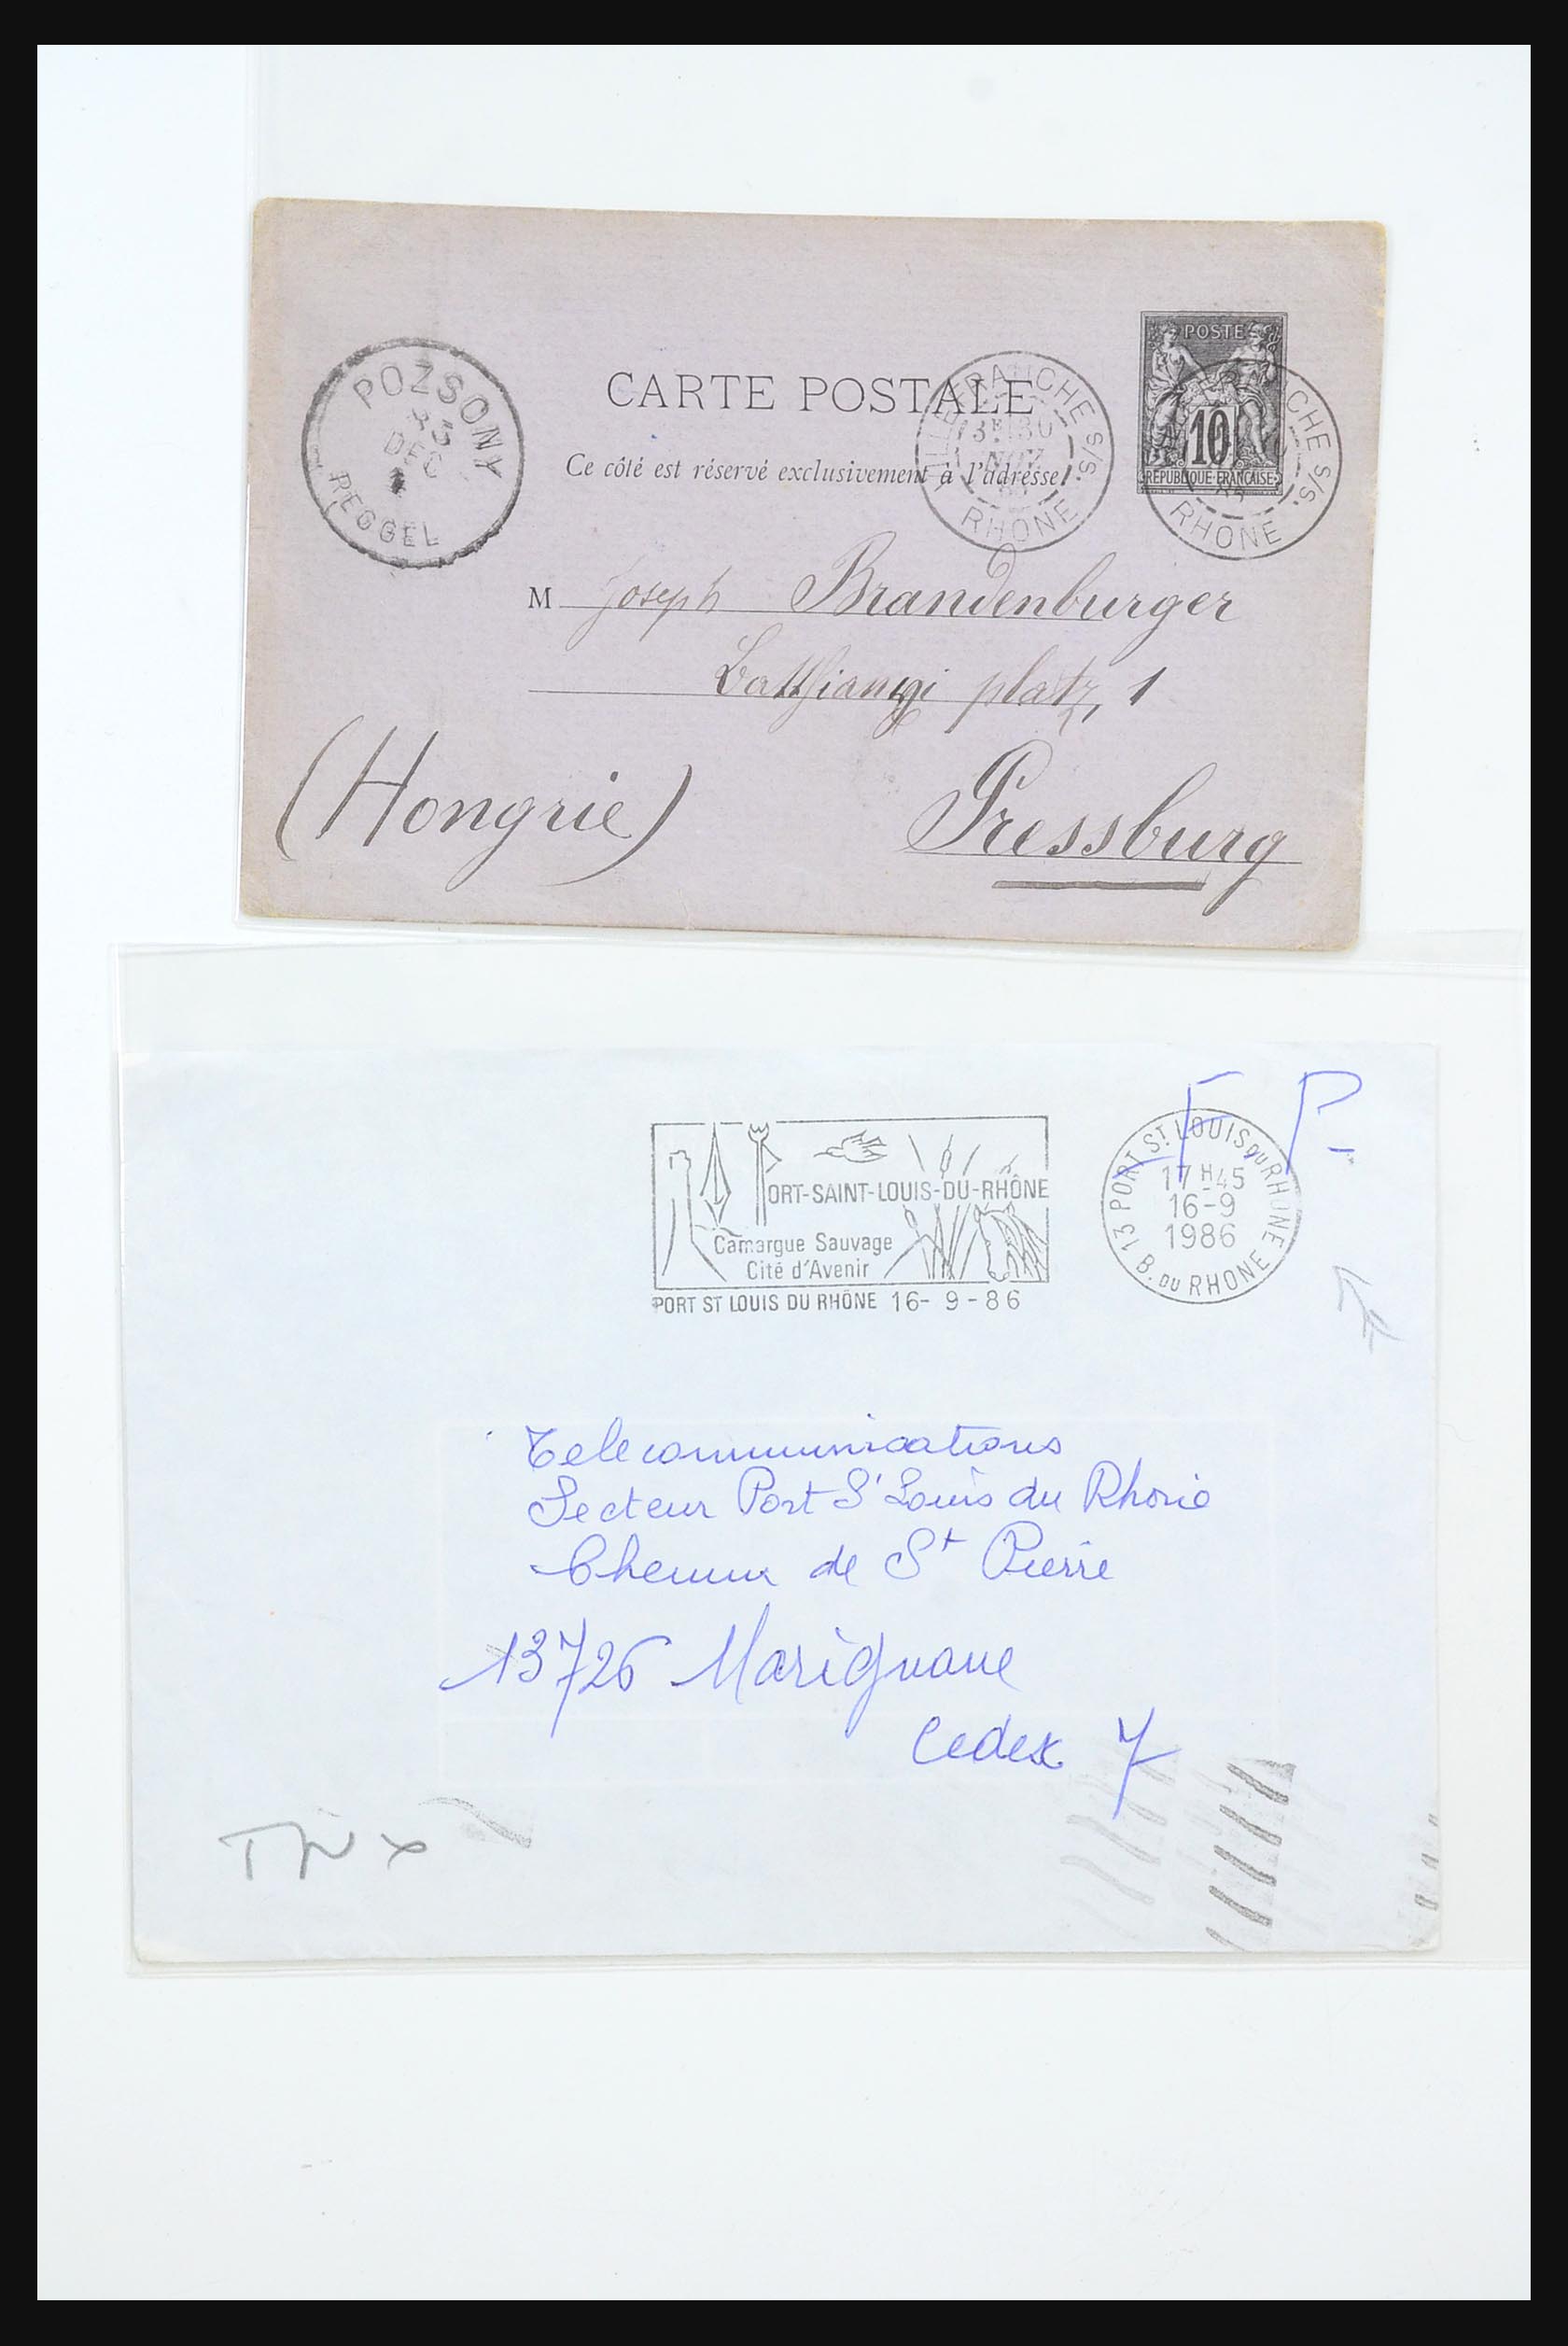 POSTE
10
REPUBLIQUE FRANÇAISE
CARTE POSTALE
Ce côté est réservé exclusivement à l'adresse.
POZSONY
85
DEC
REGGEL
VILLEFRANCHE S/S.
3E 30
NOV
RHONE
CHE S/S.
RHONE
M Joseph Brandenburger
Batthianyi platz, 1
(Hongrie) Pressburg
F P-
PORT-SAINT-LOUIS-DU-RHÔNE
Camargue Sauvage
Cité d'Avenir
PORT ST LOUIS DU RHÔNE 16- 9 - 86
13 PORT ST. LOUIS DU RHONE
17 H 45
16-9
1986
B. DU RHONE
Telecommunications
Secteur Port St Louis du Rhone
Chemin de St Pierre
13726 Marignane
Cedex 7